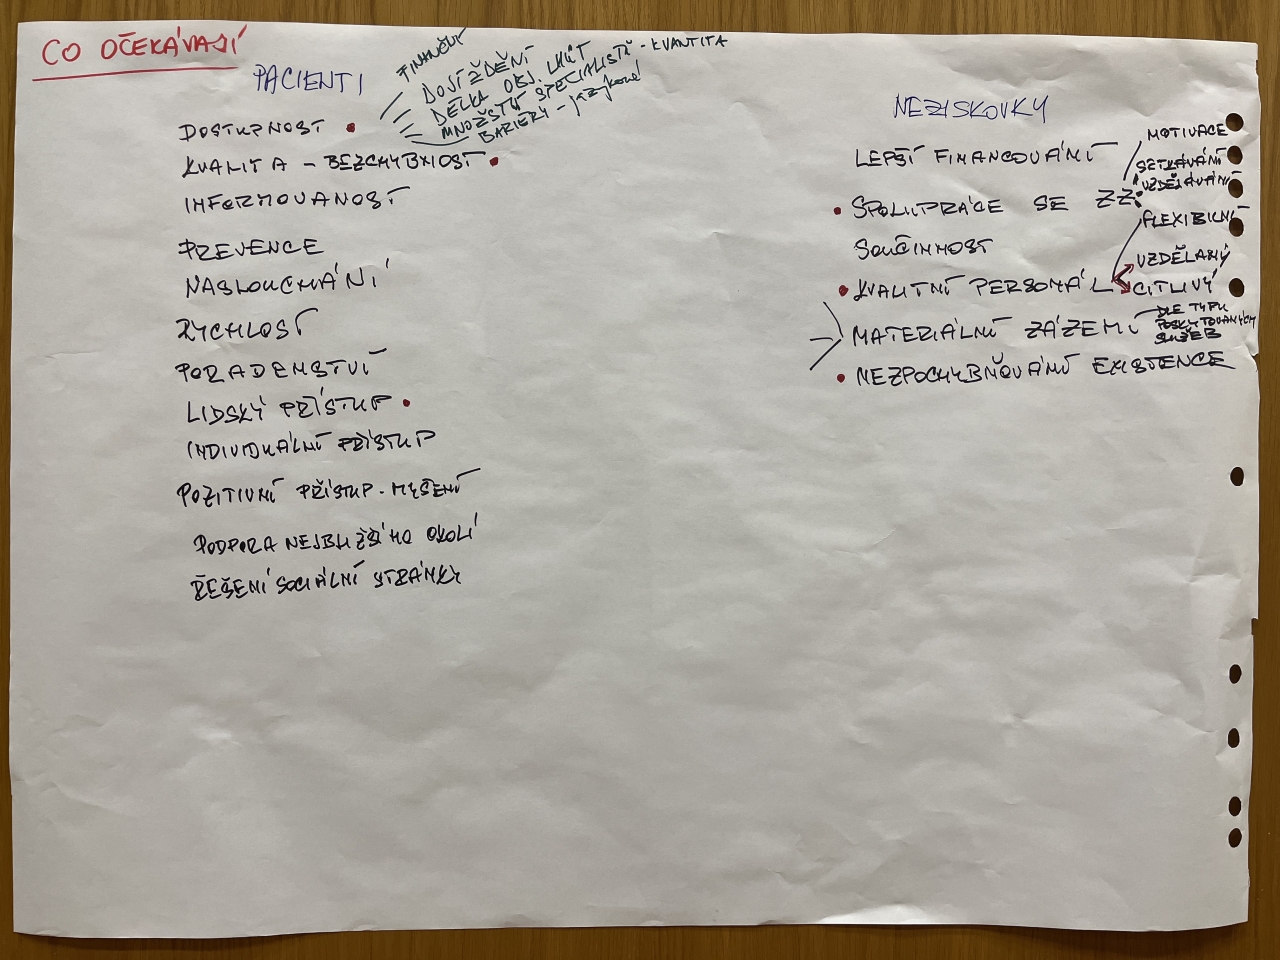 CO OČEKÁVAJÍ
PACIENTI
FINANČNÍ
DOJÍŽDĚNÍ
DÉLKA OBJ. LHŮT
MNOŽSTVÍ SPECIALISTŮ - KVANTITA
BARIÉRY - jazykové
DOSTUPNOST
KVALITA - BEZCHYBNOST
INFORMOVANOST
PREVENCE
NASLOUCHÁNÍ
RYCHLOST
PORADENSTVÍ
LIDSKÝ PŘÍSTUP
INDIVIDUÁLNÍ PŘÍSTUP
POZITIVNÍ PŘÍSTUP - MYŠLENÍ
PODPORA NEJBLIŽŠÍHO OKOLÍ
ŘEŠENÍ SOCIÁLNÍ STRÁNKY
NEZISKOVKY
LEPŠÍ FINANCOVÁNÍ
SPOLUPRÁCE SE ZZ
MOTIVACE
SETKÁVÁNÍ
VZDĚLÁVÁNÍ
SOUČINNOST
KVALITNÍ PERSONÁL
FLEXIBILNÍ
VZDĚLANÝ
CITLIVÝ
MATERIÁLNÍ ZÁZEMÍ
DLE TYPU
POSKYTOVANÝCH
SLUŽEB
NEZPOCHYBŇOVÁNÍ EXISTENCE